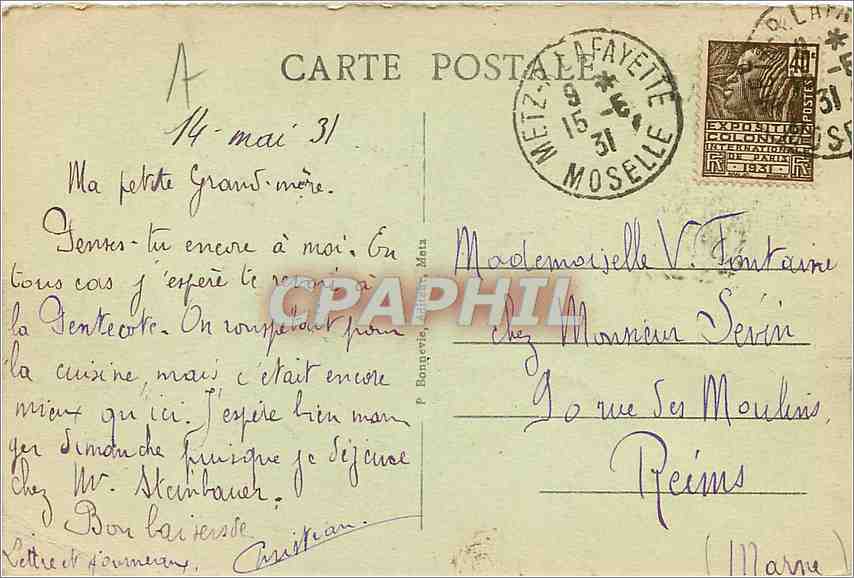 CARTE POSTALE
A
14 - mai 31
Ma petite Grand-mère.
Penses-tu encore à moi. En
tous cas j'espère te revoir à
la Pentecote. On rouspétait pour
la cuisine, mais c'était encore
mieux qu'ici. J'espère bien man
ger dimanche puisque je déjeune
chez Mr Steinbauer.
Bon baisers de
Christian.
Lettre et journeaux.
P. Bonnevie, Editeur, Metz
METZ-R. LAFAYETTE
9 * 15 -5 31
MOSELLE
R. LAFA
* -5 31
MOSE
40c
POSTES
EXPOSITION
COLONIALE
INTERNATIONALE
DE PARIS
1931
Mademoiselle V. Fontaine
chez Monsieur Sévin
90 rue des Moulins,
Reims
(Marne)
CPAPHIL